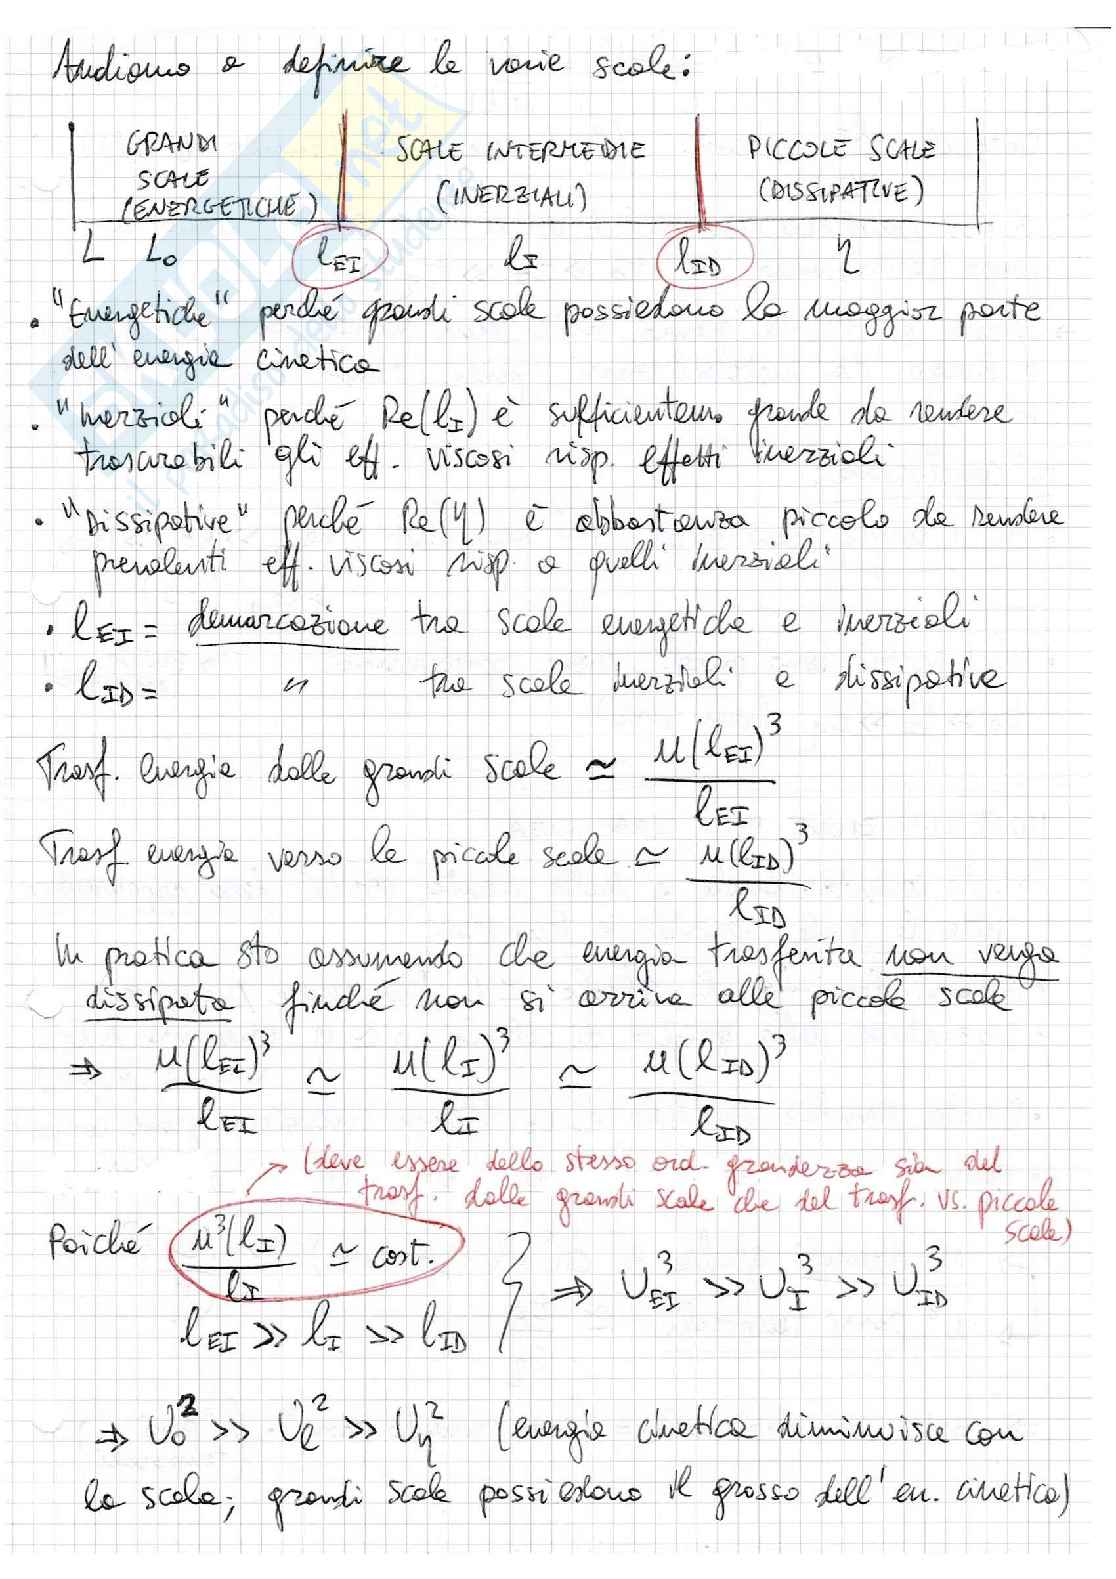 Andiamo a definire le varie scale:
GRANDI SCALE (ENERGETICHE) SCALE INTERMEDIE (INERZIALI) PICCOLE SCALE (DISSIPATIVE)
L L₀ l_EI l_I l_ID η
• "Energetiche" perché grandi scale possiedono la maggior parte
dell'energia cinetica
• "Inerziali" perché Re(l_I) è sufficientem. grande da rendere
trascurabili gli eff. viscosi risp. effetti inerziali
• "Dissipative" perché Re(η) è abbastanza piccolo da rendere
prevalenti eff. viscosi risp. a quelli inerziali
• l_EI = demarcazione tra scale energetiche e inerziali
• l_ID = " tra scale inerziali e dissipative
Trasf. energia dalle grandi scale ≃ u(l_EI)³ / l_EI
Trasf energia verso le piccole scale ≃ u(l_ID)³ / l_ID
In pratica sto assumendo che energia trasferita non venga
dissipata finché non si arriva alle piccole scale
⇒ u(l_EI)³ / l_EI ≃ u(l_I)³ / l_I ≃ u(l_ID)³ / l_ID
→ (deve essere dello stesso ord. grandezza sia del
trasf. dalle grandi scale che del trasf. vs. piccole
scale)
Poiché u³(l_I) / l_I ≃ cost.
l_EI >> l_I >> l_ID } ⇒ U_EI³ >> U_I³ >> U_ID³
⇒ U₀² >> U_l² >> U_η² (energia cinetica diminuisce con
la scala; grandi scale possiedono il grosso dell'en. cinetica)